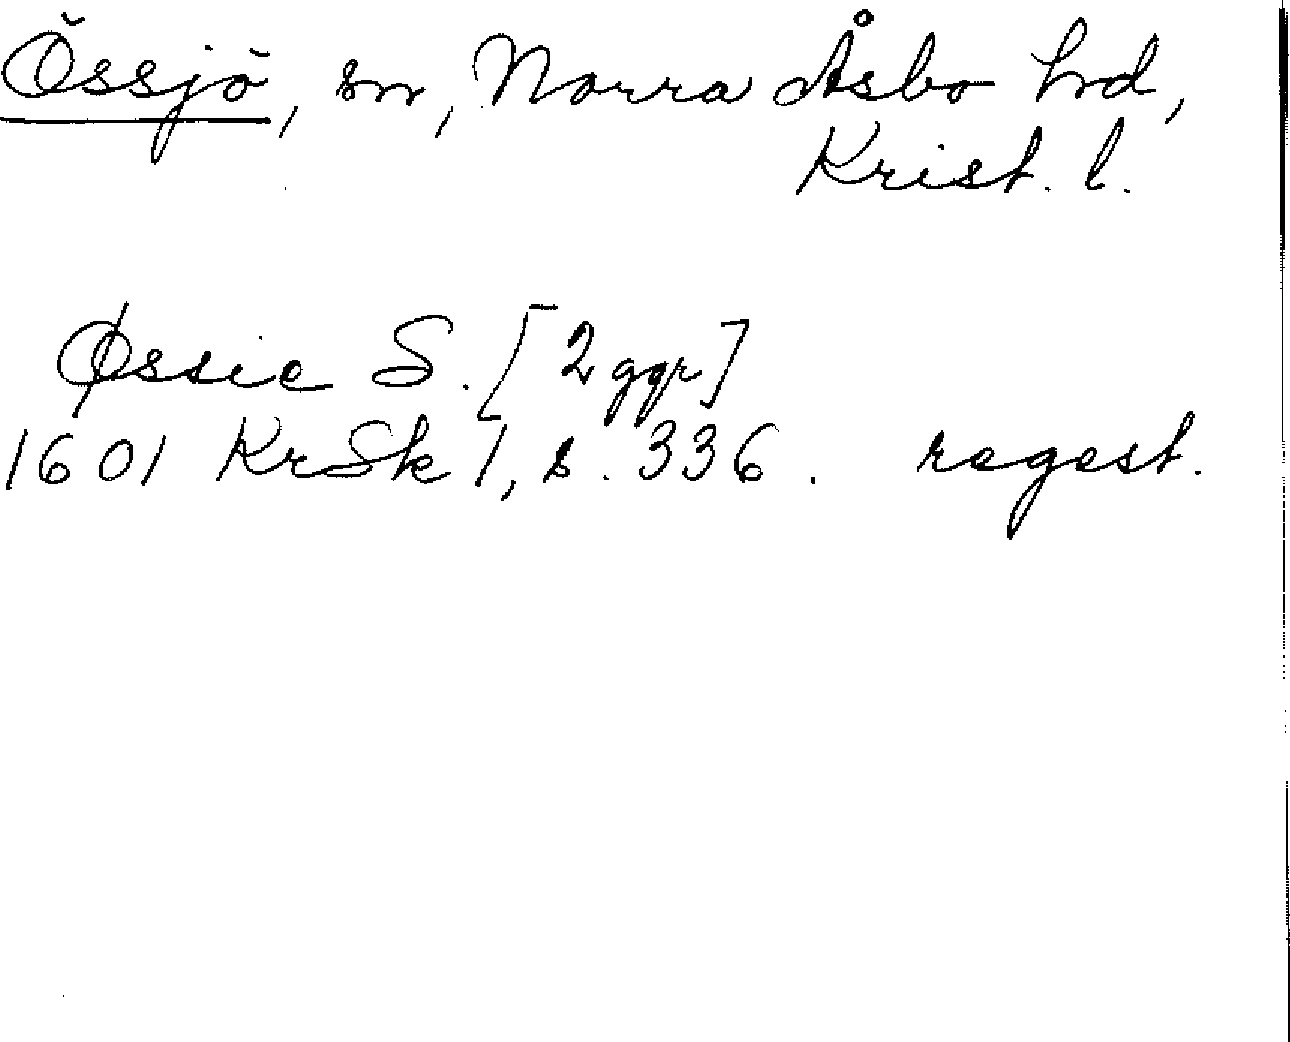 Össjö, sn, Norra Åsbo hrd,
Krist. l.
Øssie S. [2 ggr]
1601 KrSk 1, s. 336. regest.